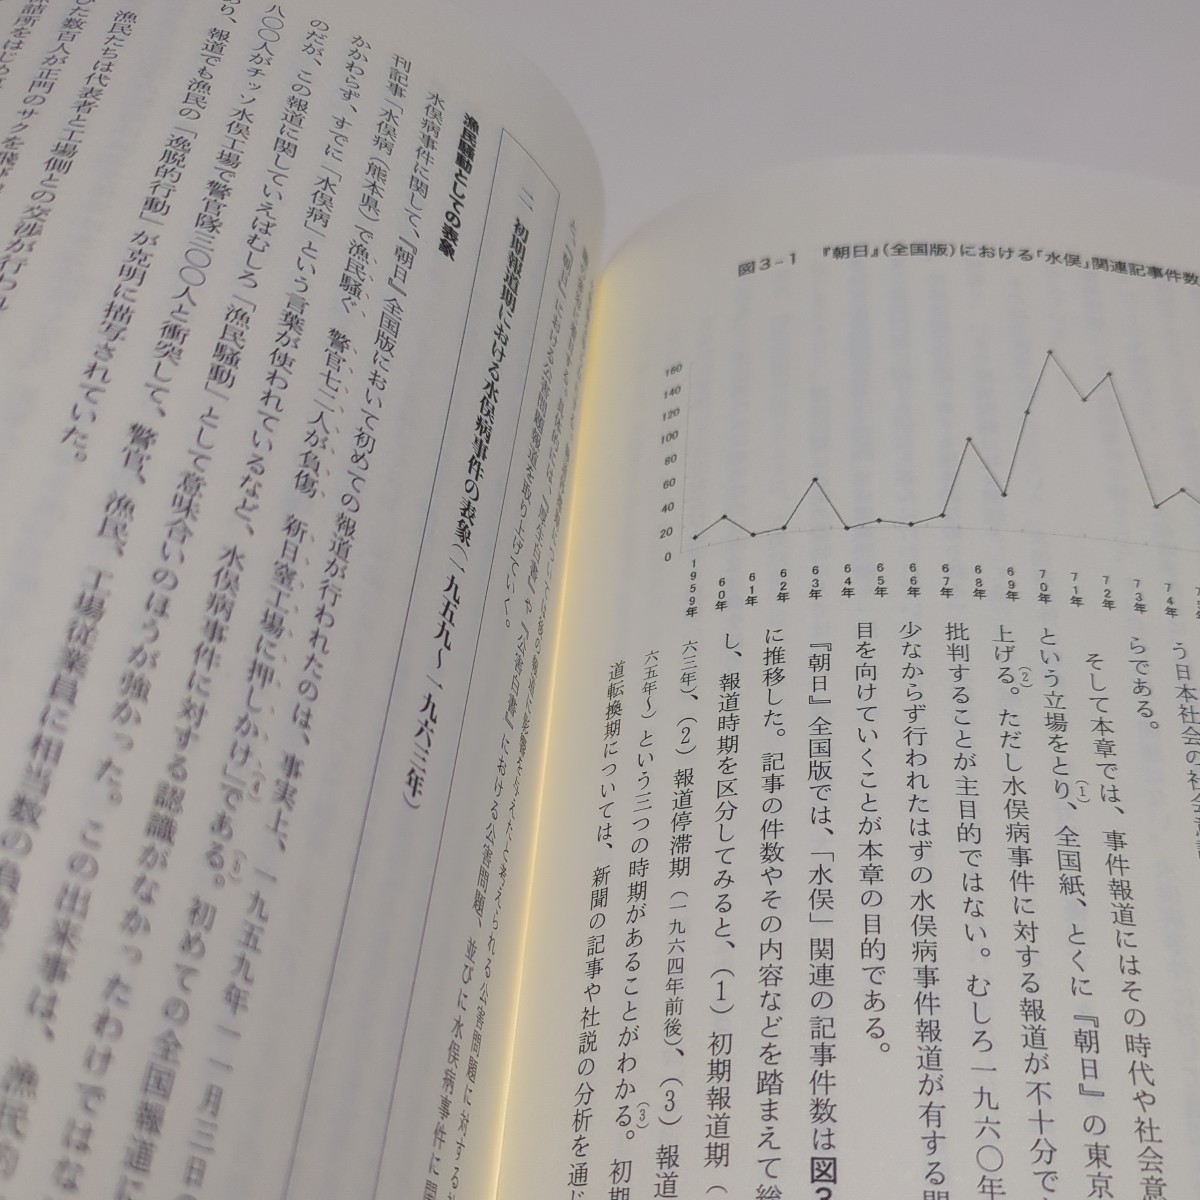 図3-1 『朝日』(全国版)における「水俣」関連記事件数
160
140
120
100
80
60
40
20
0
1959年
60年
61年
62年
63年
64年
65年
66年
67年
68年
69年
70年
71年
72年
73年
74年
う日本社会の社会意
らである。
そして本章では、事件報道にはその時代や社会意
という立場をとり、(1)全国紙、とくに『朝日』の東京
上げる。(2)ただし水俣病事件に対する報道が不十分で
批判することが主目的ではない。むしろ一九六〇年
少なからず行われたはずの水俣病事件報道が有する
目を向けていくことが本章の目的である。
『朝日』全国版では、「水俣」関連の記事件数は図3
に推移した。記事の件数やその内容などを踏まえて総
し、報道時期を区分してみると、(1)初期報道期(
六三年)、(2)報道停滞期(一九六四年前後)、(3)報道
六五年〜)という三つの時期があることがわかる。(3)初期
道転換期については、新聞の記事や社説の分析を通じ
上『朝日』における公害問題報道を取り上げていく。
二 初期報道期における水俣病事件の表象(一九五九〜一九六三年)
漁民騒動としての表象
水俣病事件に関して、『朝日』全国版において初めての報道が行われたのは、事実上、一九五九年一一月三日の
刊記事「水俣病(熊本県)で漁民騒ぐ 警官七二人が負傷 新日窒工場に押しかけ」(4)である。(5)初めての全国報道に
かかわらず、すでに「水俣病」という言葉が使われているなど、水俣病事件に対する認識がなかったわけではな
のだが、この報道に関していえばむしろ「漁民騒動」として意味合いのほうが強かった。この出来事は、漁民的
八〇〇人がチッソ水俣工場で警官隊三〇〇人と衝突して、警官、漁民、工場従業員に相当数の負傷
あり、報道でも漁民の「逸脱的行動」が克明に描写されていた。
漁民たちは代表者と工場側との交渉が行われ
びた数百人が正門のサクを飛び